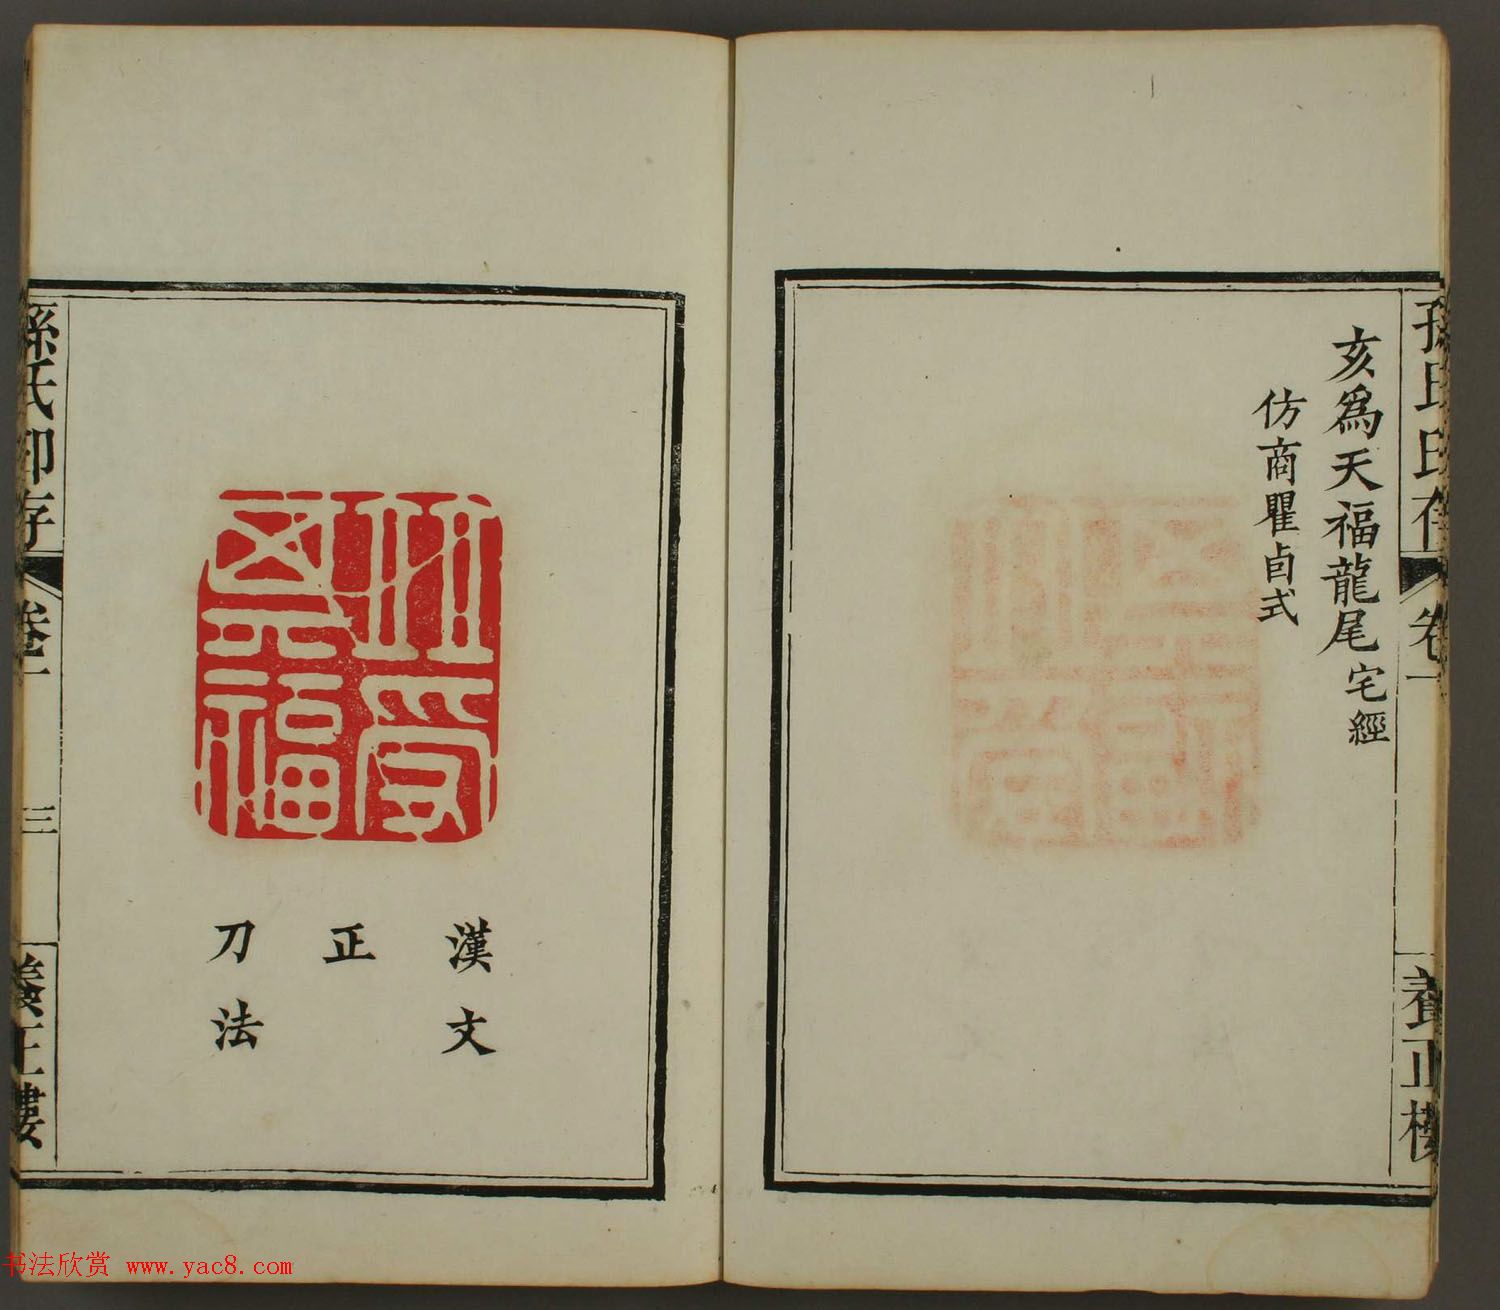 孫氏印存
卷一
養正樓
亥爲天福龍尾宅經
仿商瞿卣式
竝受
五福
漢文
正
刀法
孫氏印存
卷一
三
養正樓
书法欣赏 www.yac8.com